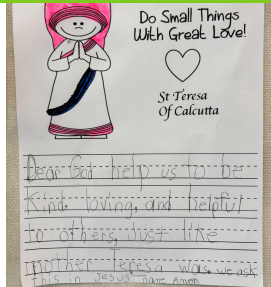 Do Small Things
With Great Love!
St Teresa
Of Calcutta
Dear God help us to be
kind, loving, and helpful
to others, Just like
mother Teresa was, we ask
this in Jesus name Amen